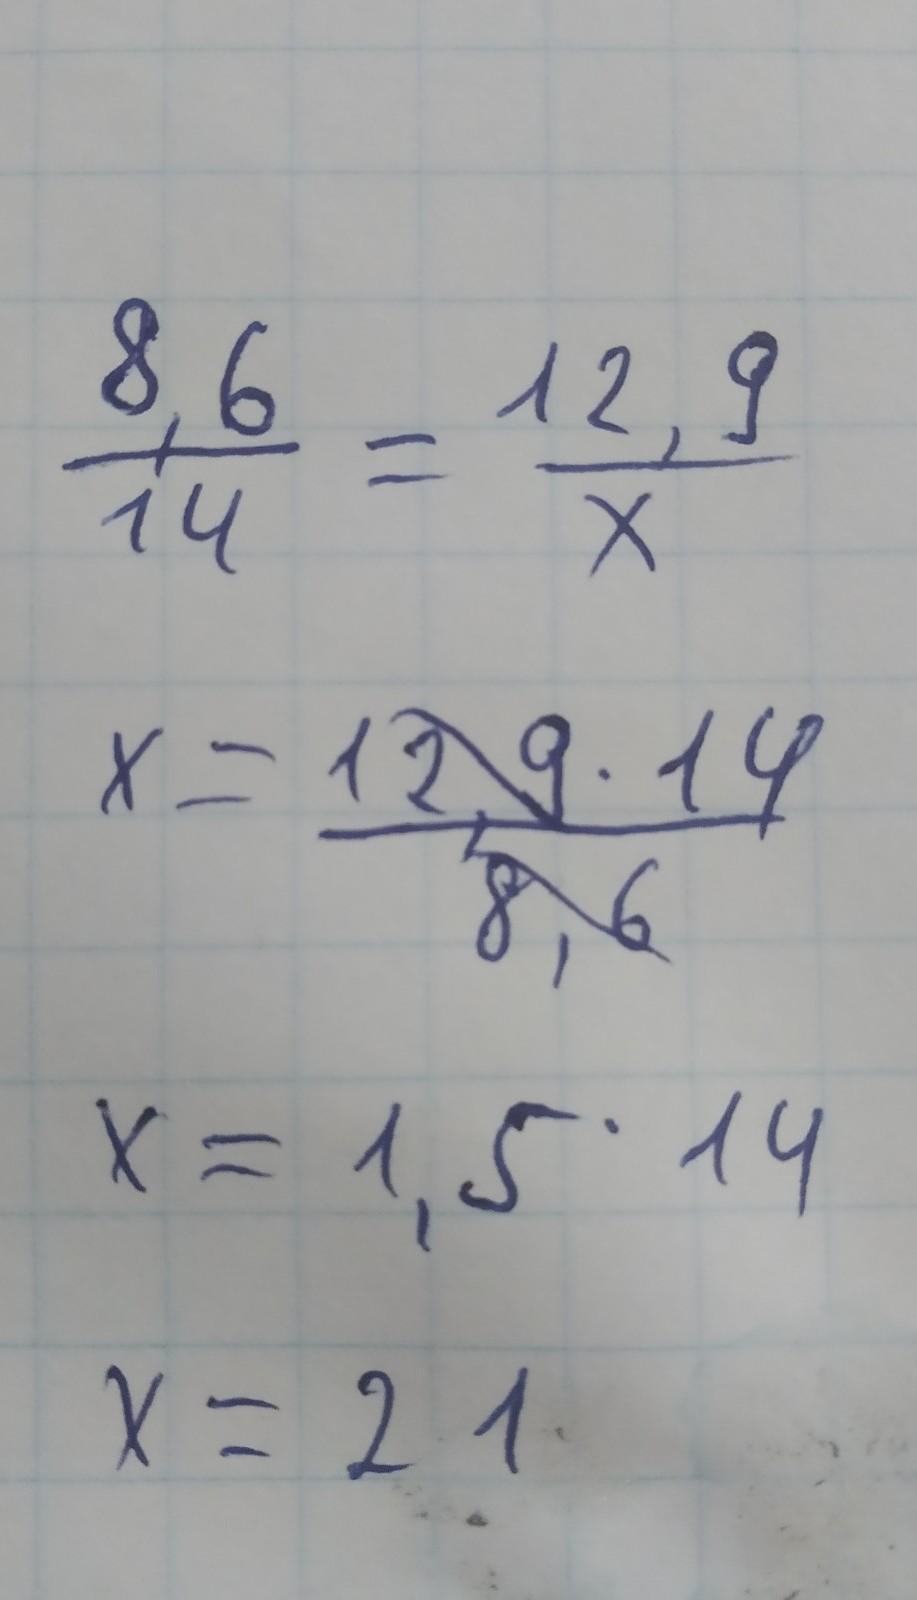 8,6/14 = 12,9/x
x = 12,9 · 14/8,6
x = 1,5 · 14
x = 21